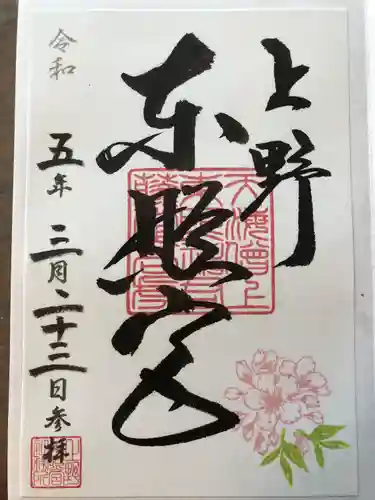 上野
東照宮
令和五年三月二十三日参拝